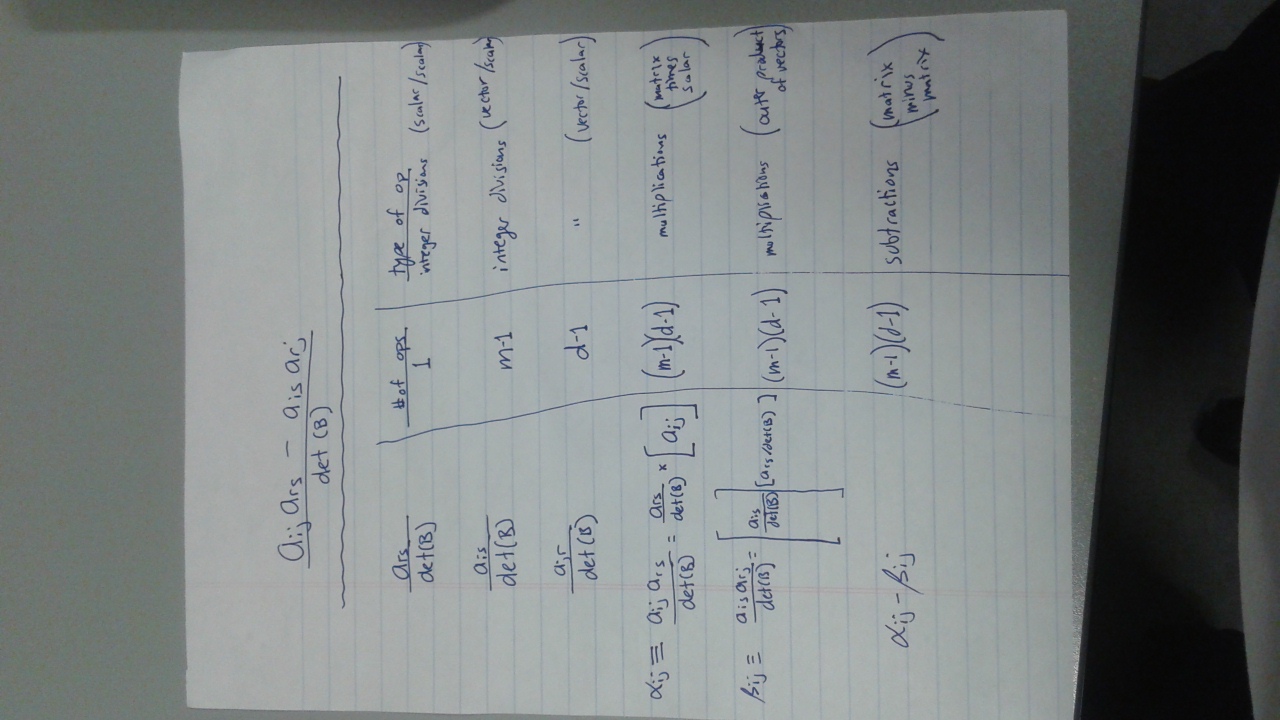 aij ars − ais arj
det (B)
# of ops type of op
ars / det(B) 1 integer divisions (scalar/scalar)
ais / det(B) m-1 integer divisions (vector/scalar)
air / det(B) d-1 " (vector/scalar)
αij ≡ aij ars / det(B) = ars / det(B) * [aij] (m-1)(d-1) multiplications (matrix times scalar)
βij ≡ ais arj / det(B) = [ais / det(B)] [ars/det(B)] (m-1)(d-1) multiplications (outer product of vectors)
αij − βij (m-1)(d-1) subtractions (matrix minus matrix)